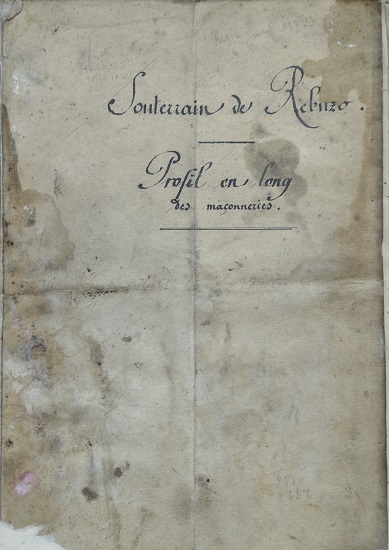 Souterrain de Rebuzo.
Profil en long
des maçonneries.